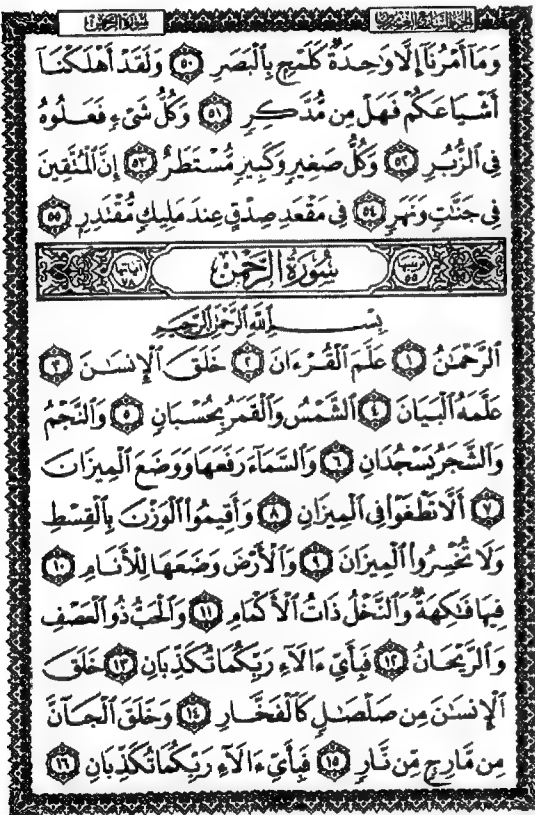 سُورَةُ الرَّحْمٰن
الجزء السابع والعشرون
وَمَآ أَمْرُنَآ إِلَّا وَٰحِدَةٌ كَلَمْحٍۭ بِٱلْبَصَرِ ۝٥٠ وَلَقَدْ أَهْلَكْنَآ
أَشْيَاعَكُمْ فَهَلْ مِن مُّدَّكِرٍ ۝٥١ وَكُلُّ شَىْءٍ فَعَلُوهُ
فِى ٱلزُّبُرِ ۝٥٢ وَكُلُّ صَغِيرٍ وَكَبِيرٍ مُّسْتَطَرٌ ۝٥٣ إِنَّ ٱلْمُتَّقِينَ
فِى جَنَّٰتٍ وَنَهَرٍ ۝٥٤ فِى مَقْعَدِ صِدْقٍ عِندَ مَلِيكٍ مُّقْتَدِرٍۭ ۝٥٥
ترتيبها ٥٥ سُورَةُ الرَّحْمٰن آياتها ٧٨
بِسْمِ ٱللَّهِ ٱلرَّحْمَٰنِ ٱلرَّحِيمِ
ٱلرَّحْمَٰنُ ۝١ عَلَّمَ ٱلْقُرْءَانَ ۝٢ خَلَقَ ٱلْإِنسَٰنَ ۝٣
عَلَّمَهُ ٱلْبَيَانَ ۝٤ ٱلشَّمْسُ وَٱلْقَمَرُ بِحُسْبَانٍ ۝٥ وَٱلنَّجْمُ
وَٱلشَّجَرُ يَسْجُدَانِ ۝٦ وَٱلسَّمَآءَ رَفَعَهَا وَوَضَعَ ٱلْمِيزَانَ
۝٧ أَلَّا تَطْغَوْا۟ فِى ٱلْمِيزَانِ ۝٨ وَأَقِيمُوا۟ ٱلْوَزْنَ بِٱلْقِسْطِ
وَلَا تُخْسِرُوا۟ ٱلْمِيزَانَ ۝٩ وَٱلْأَرْضَ وَضَعَهَا لِلْأَنَامِ ۝١٠
فِيهَا فَٰكِهَةٌ وَٱلنَّخْلُ ذَاتُ ٱلْأَكْمَامِ ۝١١ وَٱلْحَبُّ ذُو ٱلْعَصْفِ
وَٱلرَّيْحَانُ ۝١٢ فَبِأَىِّ ءَالَآءِ رَبِّكُمَا تُكَذِّبَانِ ۝١٣ خَلَقَ
ٱلْإِنسَٰنَ مِن صَلْصَٰلٍ كَٱلْفَخَّارِ ۝١٤ وَخَلَقَ ٱلْجَآنَّ
مِن مَّارِجٍ مِّن نَّارٍ ۝١٥ فَبِأَىِّ ءَالَآءِ رَبِّكُمَا تُكَذِّبَانِ ۝١٦